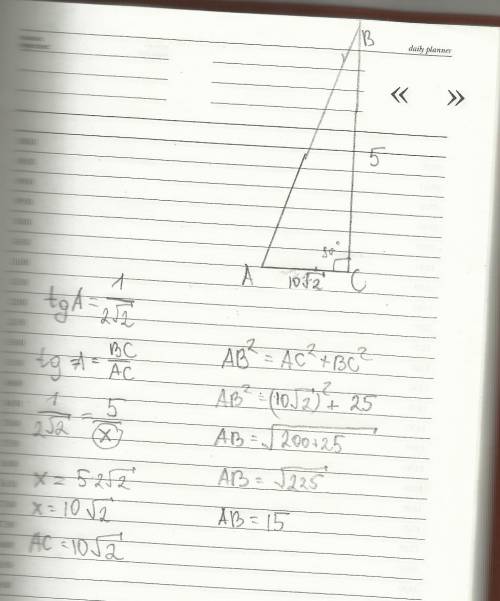 daily planner
« »
B
5
90°
A 10√2 C
tg A = 1/2√2
tg A = BC/AC
1/2√2 = 5/x
x = 5·2√2
x = 10√2
AC = 10√2
AB² = AC² + BC²
AB² = (10√2)² + 25
AB = √200+25
AB = √225
AB = 15